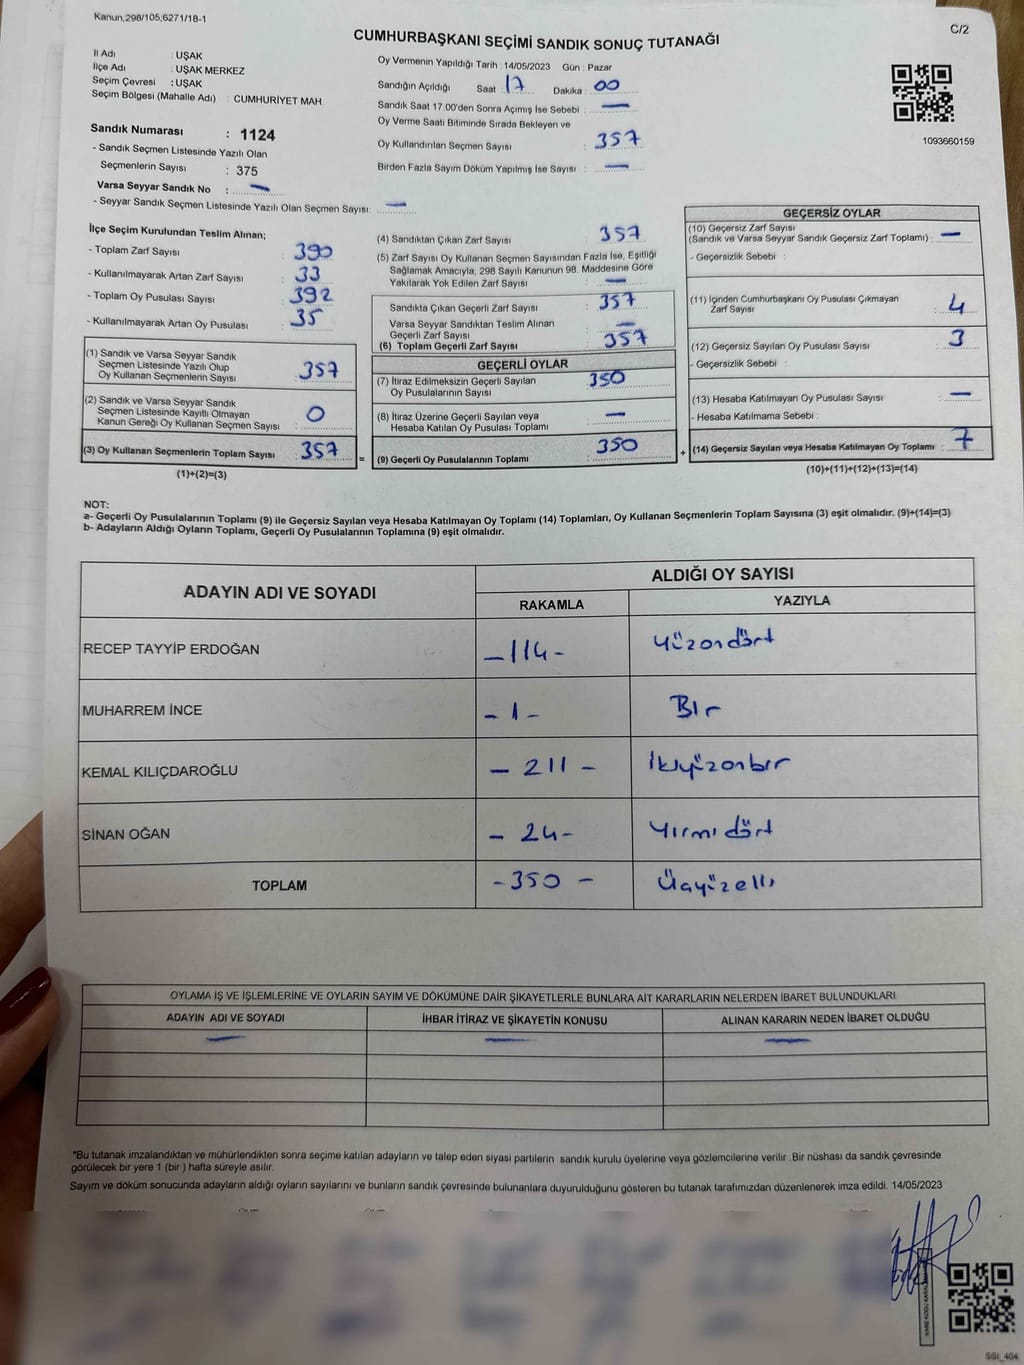 Kanun,298/105;6271/18-1
C/2
CUMHURBAŞKANI SEÇİMİ SANDIK SONUÇ TUTANAĞI
İl Adı : UŞAK
İlçe Adı : UŞAK MERKEZ
Seçim Çevresi : UŞAK
Seçim Bölgesi (Mahalle Adı) : CUMHURİYET MAH.
Sandık Numarası : 1124
- Sandık Seçmen Listesinde Yazılı Olan
Seçmenlerin Sayısı : 375
Varsa Seyyar Sandık No : —
- Seyyar Sandık Seçmen Listesinde Yazılı Olan Seçmen Sayısı: —
Oy Vermenin Yapıldığı Tarih : 14/05/2023 Gün : Pazar
Sandığın Açıldığı Saat : 17 Dakika : 00
Sandık Saat 17:00'den Sonra Açımış İse Sebebi : —
Oy Verme Saati Bitiminde Sırada Bekleyen ve
Oy Kullandırılan Seçmen Sayısı : 357
Birden Fazla Sayım Döküm Yapılmış İse Sayısı : —
1093660159
İlçe Seçim Kurulundan Teslim Alınan;
- Toplam Zarf Sayısı : 390
- Kullanılmayarak Artan Zarf Sayısı : 33
- Toplam Oy Pusulası Sayısı : 392
- Kullanılmayarak Artan Oy Pusulası : 35
(1) Sandık ve Varsa Seyyar Sandık
Seçmen Listesinde Yazılı Olup
Oy Kullanan Seçmenlerin Sayısı : 357
(2) Sandık ve Varsa Seyyar Sandık
Seçmen Listesinde Kayıtlı Olmayan
Kanun Gereği Oy Kullanan Seçmen Sayısı : 0
(3) Oy Kullanan Seçmenlerin Toplam Sayısı : 357
(1)+(2)=(3)
=
(4) Sandıktan Çıkan Zarf Sayısı : 357
(5) Zarf Sayısı Oy Kullanan Seçmen Sayısından Fazla İse, Eşitliği
Sağlamak Amacıyla, 298 Sayılı Kanunun 98. Maddesine Göre
Yakılarak Yok Edilen Zarf Sayısı : —
Sandıkta Çıkan Geçerli Zarf Sayısı : 357
Varsa Seyyar Sandıktan Teslim Alınan
Geçerli Zarf Sayısı : —
(6) Toplam Geçerli Zarf Sayısı : 357
GEÇERLİ OYLAR
(7) İtiraz Edilmeksizin Geçerli Sayılan
Oy Pusulalarının Sayısı : 350
(8) İtiraz Üzerine Geçerli Sayılan veya
Hesaba Katılan Oy Pusulası Toplamı : —
(9) Geçerli Oy Pusulalarının Toplamı : 350
+
GEÇERSİZ OYLAR
(10) Geçersiz Zarf Sayısı
(Sandık ve Varsa Seyyar Sandık Geçersiz Zarf Toplamı) : —
- Geçersizlik Sebebi :
(11) İçinden Cumhurbaşkanı Oy Pusulası Çıkmayan
Zarf Sayısı : 4
(12) Geçersiz Sayılan Oy Pusulası Sayısı : 3
- Geçersizlik Sebebi :
(13) Hesaba Katılmayan Oy Pusulası Sayısı : —
- Hesaba Katılmama Sebebi :
(14) Geçersiz Sayılan veya Hesaba Katılmayan Oy Toplamı : 7
(10)+(11)+(12)+(13)=(14)
NOT:
a- Geçerli Oy Pusulalarının Toplamı (9) ile Geçersiz Sayılan veya Hesaba Katılmayan Oy Toplamı (14) Toplamları, Oy Kullanan Seçmenlerin Toplam Sayısına (3) eşit olmalıdır. (9)+(14)=(3)
b- Adayların Aldığı Oyların Toplamı, Geçerli Oy Pusulalarının Toplamına (9) eşit olmalıdır.
ADAYIN ADI VE SOYADI ALDIĞI OY SAYISI
RAKAMLA YAZIYLA
RECEP TAYYİP ERDOĞAN -114- Yüzondört
MUHARREM İNCE -1- Bır
KEMAL KILIÇDAROĞLU -211- İkiyüzonbır
SİNAN OĞAN -24- Yırmıdört
TOPLAM -350- Üçyüzellı
OYLAMA İŞ VE İŞLEMLERİNE VE OYLARIN SAYIM VE DÖKÜMÜNE DAİR ŞİKAYETLERLE BUNLARA AİT KARARLARIN NELERDEN İBARET BULUNDUKLARI
ADAYIN ADI VE SOYADI İHBAR İTİRAZ VE ŞİKAYETİN KONUSU ALINAN KARARIN NEDEN İBARET OLDUĞU
— — —
*Bu tutanak imzalandıktan ve mühürlendikten sonra seçime katılan adayların ve talep eden siyasi partilerin sandık kurulu üyelerine veya gözlemcilerine verilir .Bir nüshası da sandık çevresinde
görülecek bir yere 1 (bir ) hafta süreyle asılır.
Sayım ve döküm sonucunda adayların aldığı oyların sayılarını ve bunların sandık çevresinde bulunanlara duyurulduğunu gösteren bu tutanak tarafımızdan düzenlenerek imza edildi. 14/05/2023
SSI_404